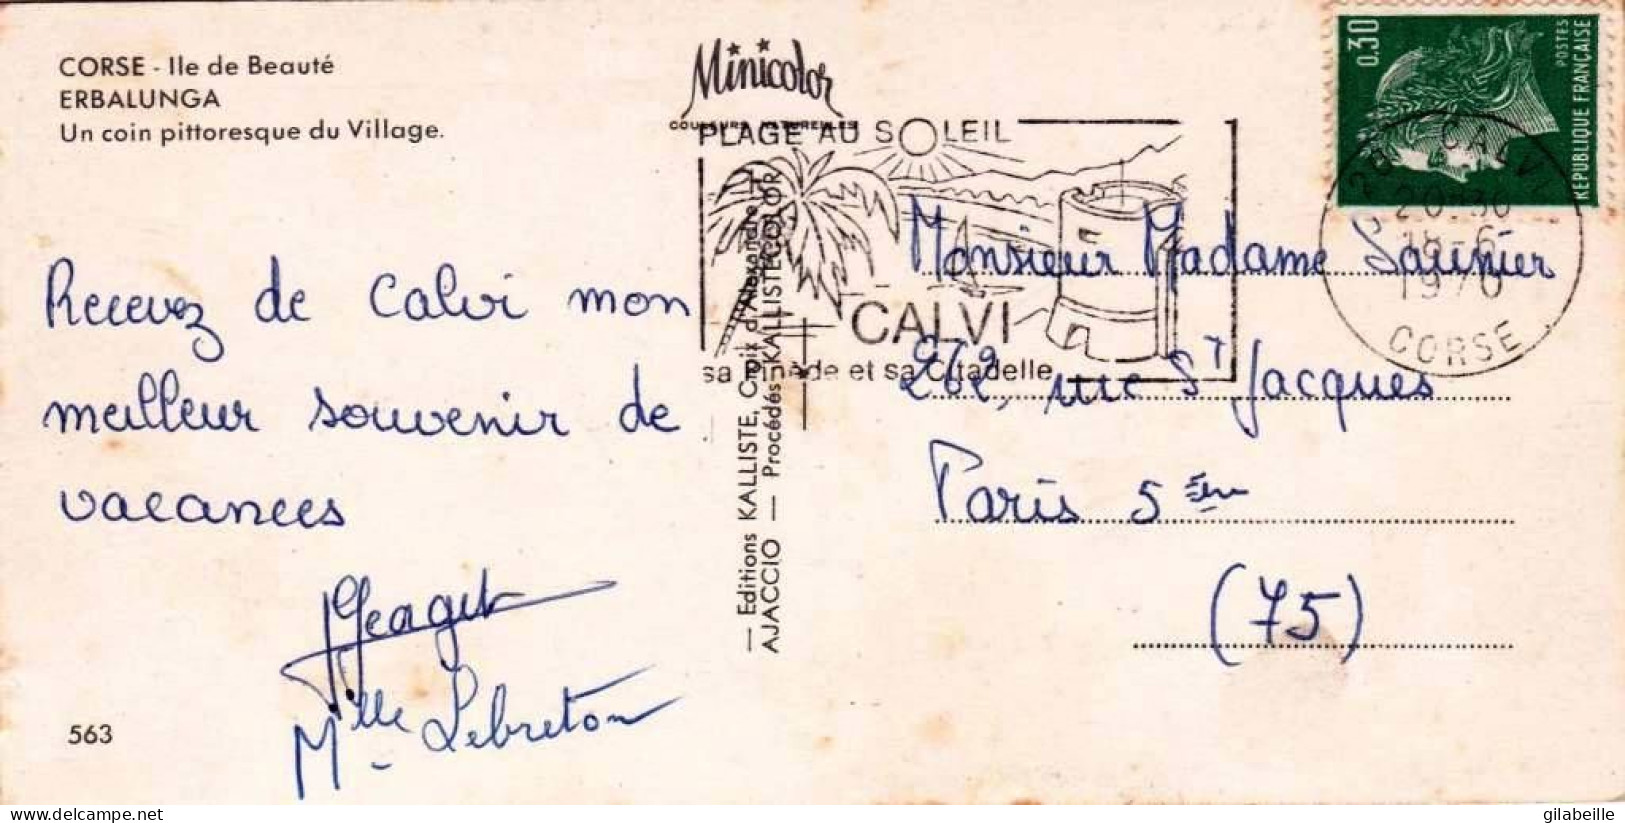 CORSE - Ile de Beauté
ERBALUNGA
Un coin pittoresque du Village.
Minicolor
COULEURS NATURELLES
PLAGE AU SOLEIL
CALVI
sa Pinède et sa Citadelle
0.30
POSTES
REPUBLIQUE FRANÇAISE
20 CALVI
20H30
18-6
1970
CORSE
Recevez de Calvi mon
meilleur souvenir de
vacances
Mlle Lebreton
563
— Editions KALLISTE, Croix d'Alexandre —
AJACCIO — Procédés KALLISTECOLOR
Monsieur Madame Saunier
262, rue St Jacques
Paris 5ème
(75)
gilabeille